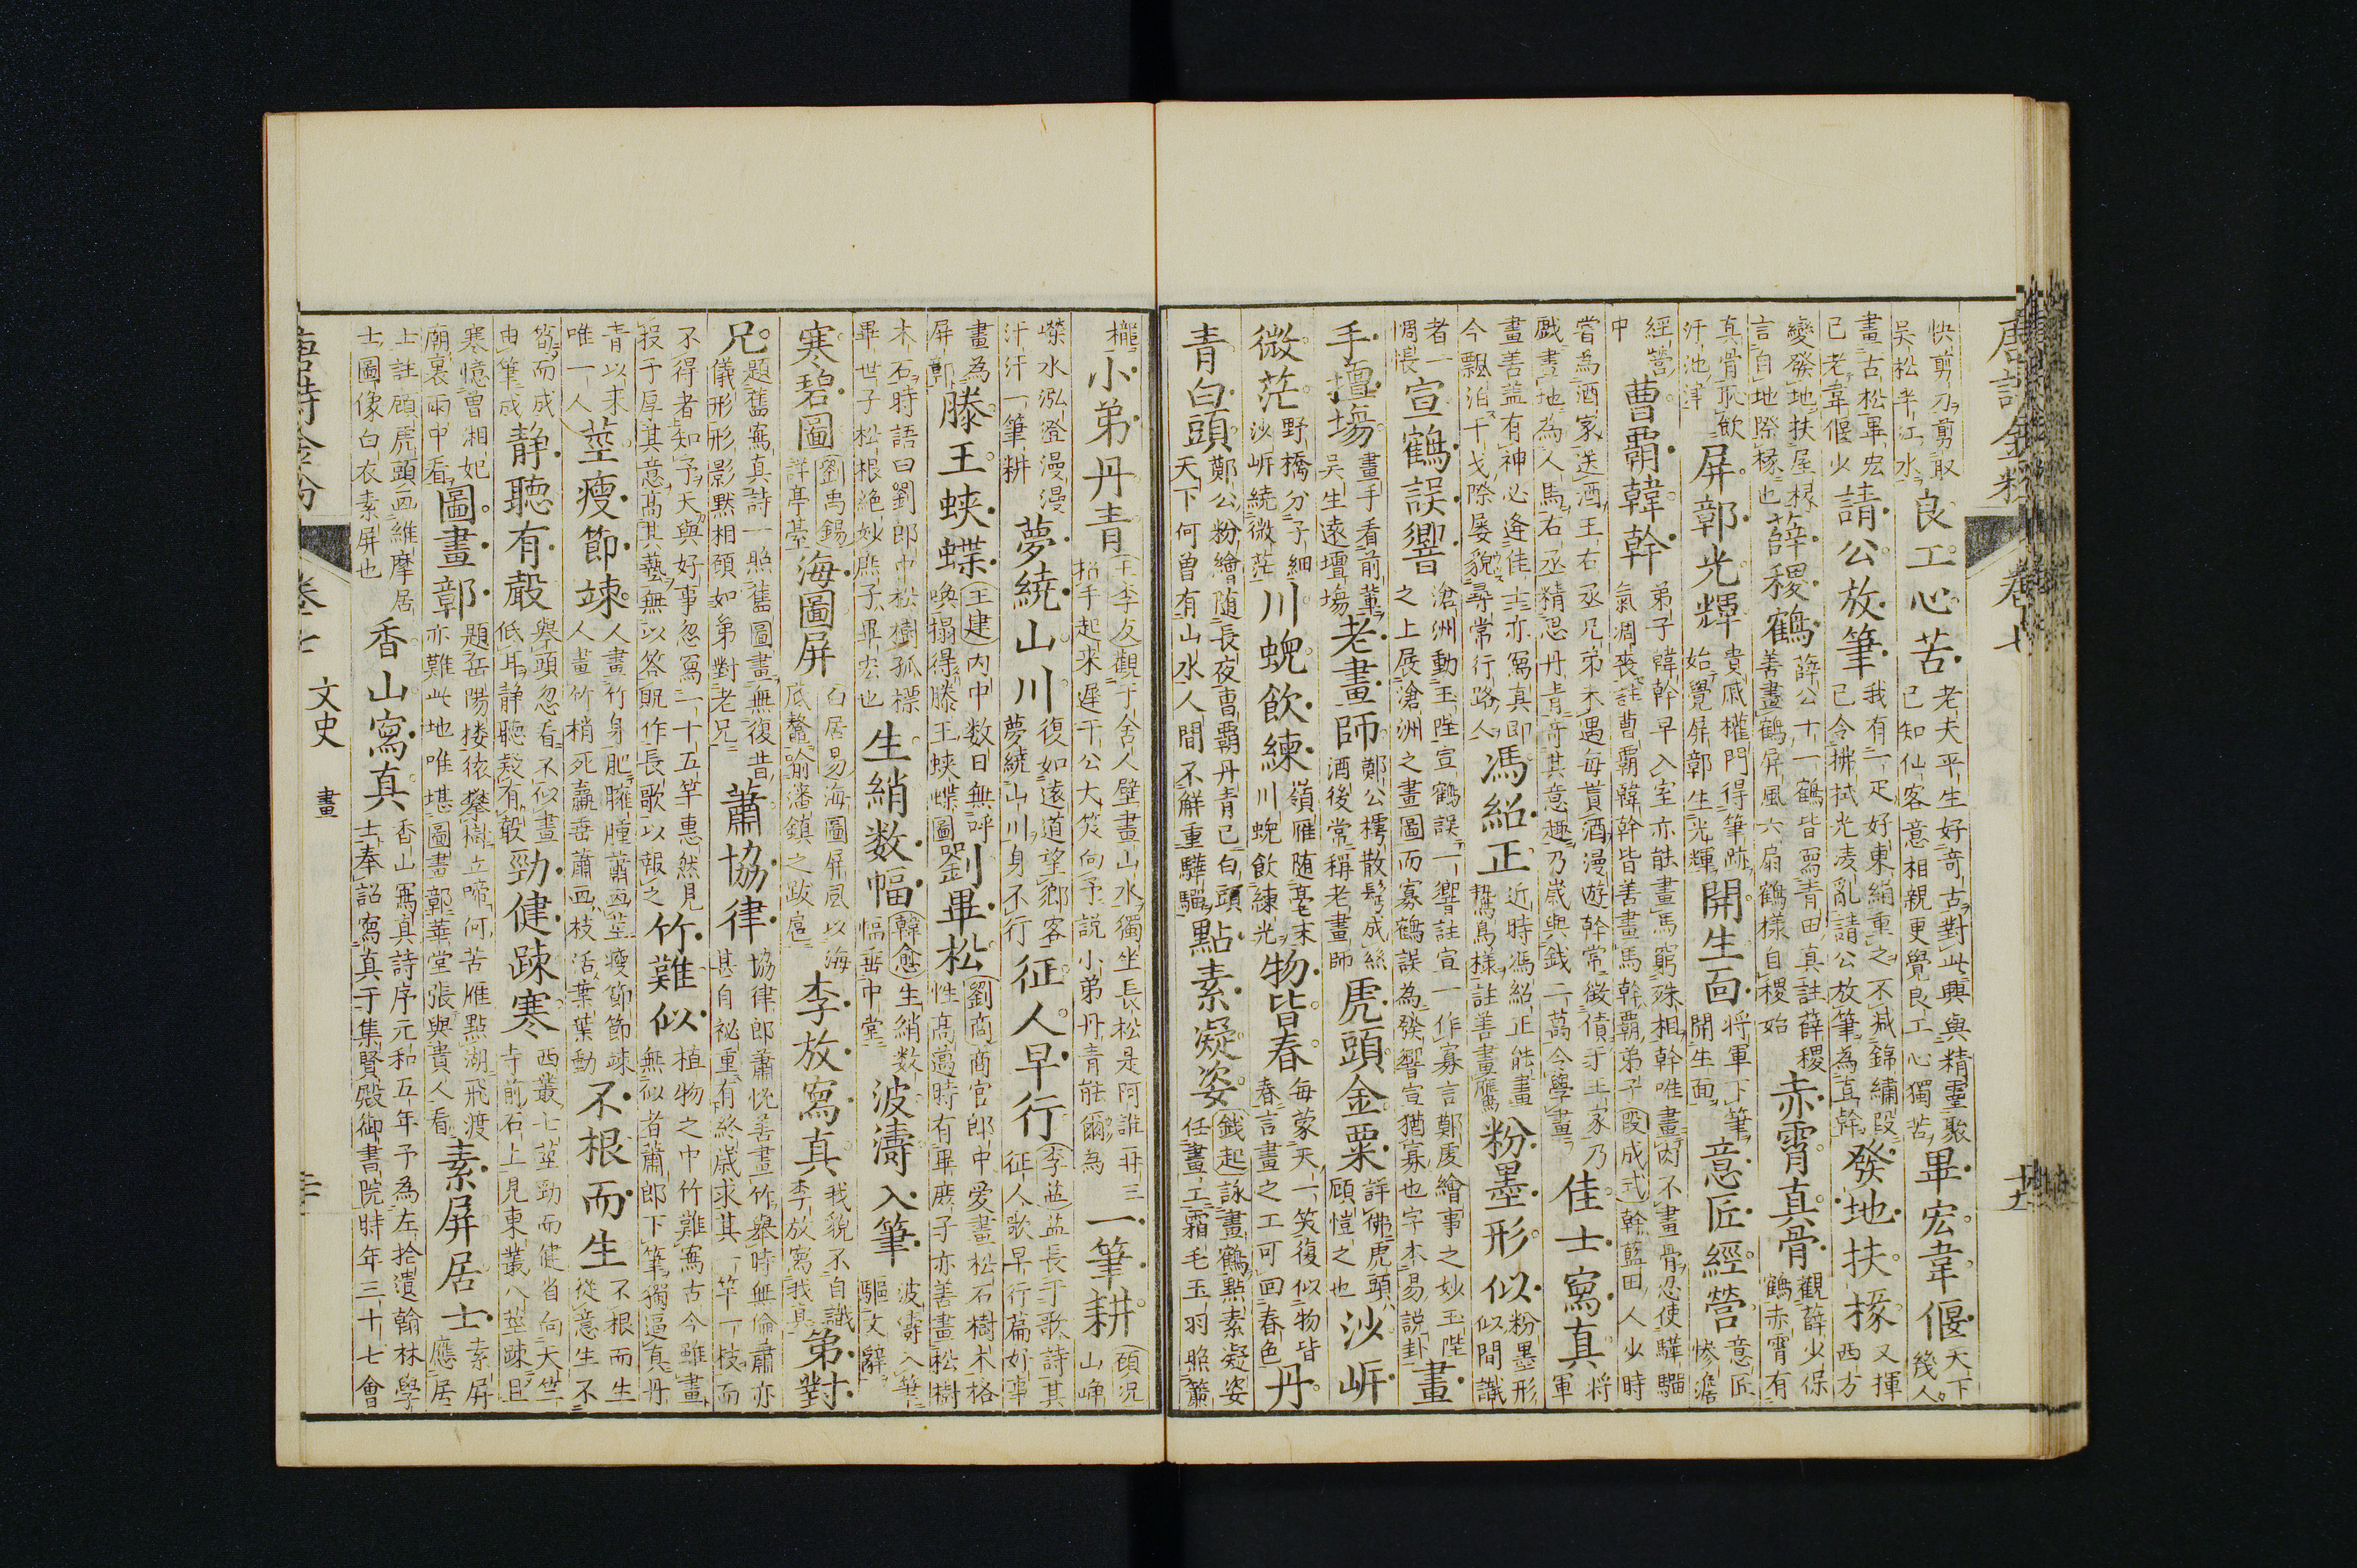 唐詩金粉 卷七 十九
快剪刀剪取
吳松半江水
良工心苦
老夫平生好奇古對此興與精靈聚
已知仙客意相親更覺良工心獨苦
畢宏韋偃
天下幾人
畫古松畢宏
已老韋偃少
請公放筆
我有一疋好東絹重之不減錦繡段
已令拂拭光凌亂請公放筆為直幹
發地扶椽
又揮西方
變發地扶屋椽
言自地際椽也
薛稷鶴
薛公十一鶴皆寫青田真註薛稷
善畫鶴屏風六扇鶴樣自稷始
赤霄真骨
觀薛少保
鶴赤霄有
真骨耻飲
汙池津
屏鄣光輝
貴戚權門得筆跡
始覺屏鄣生光輝
開生面
將軍下筆
開生面
意匠經營
意匠
慘澹
經營
中
曹霸韓幹
弟子韓幹早入室亦能畫馬窮殊相幹唯畫肉不畫骨忍使驊騮
氣凋喪註曹霸韓幹皆善畫馬幹霸弟子段成式幹藍田人少時
嘗為酒家送酒王右丞兄弟未遇每貰酒漫遊幹常徵債于王家乃
戲畫地為人馬右丞精思丹青奇其意趣乃歲與錢二萬令學畫
佳士寫真
將
軍
畫善盖有神必逢佳士亦寫真即
今飄泊干戈際屡貌尋常行路人
馮紹正
近時馮紹正能畫
鷙鳥樣註善畫鷹
粉墨形似
粉墨形
似間識
者一
惆悵
宣鶴誤響
滄洲動玉陛宣鶴誤一響註宣一作寡言鄭虔繪事之妙玉陛
之上展滄洲之畫圖而寡鶴誤為發響宣猶寡也字本易説卦
畫
手擅塲
畫手看前輩
吳生遠壇塲
老畫師
鄭公樗散鬂成絲
酒後常稱老畫師
虎頭金粟
詳佛虎頭
顧愷之也
沙㟁
微茫
野橋分子細
沙㟁繞微茫
川蜺飲練
嶺雁随毫末
川蜺飲練光
物皆春
每蒙天一笑復似物皆
春言畫之工可回春色
丹
青白頭
鄭公粉繪随長夜曹霸丹青已白頭
天下何曾有山水人間不解重驊騮
點素凝姿
錢起詠畫鶴點素凝姿
任畫工霜毛玉羽照簾
櫳
小弟丹青
王季友觀于舍人壁畫山水獨坐長松是阿誰再三
招手起来遲于公大笑向予説小弟丹青能爾為
一筆耕
顧况
山崢
嶸水泓澄漫漫
汗汗一筆耕
夢繞山川
復如遠道望鄉客
夢繞山川身不行
征人早行
李益益長于歌詩其
征人歌早行篇好事
畫為
屏鄣
滕王蛺蝶
王建内中数日無呼
喚搨得滕王蛺蝶圖
劉畢松
劉商商官郎中愛畫松石樹木格
性高邁時有畢庶子亦善畫松樹
木石時語曰劉郎中松樹孤標
畢世子松根絶妙庶子畢宏也
生綃数幅
韓愈生綃数
幅垂中堂
波濤入筆
波濤入筆
驅文辭
寒碧圖
劉禹錫
詳亭臺
海圖屏
白居易海圖屏風以海
底鰲喻瀋鎮之跋扈
李放寫真
我貌不自識
李放寫我真
弟對
兄
題舊寫真詩一照舊圖畫無復昔
儀形形影黙相顧如弟對老兄
蕭協律
協律郎蕭恱善畫竹舉時無倫蕭亦
甚自祕重有終歳求其一竿一枝而
不得者知予天與好事忽寫一十五竿惠然見
投于厚其意髙其藝無以答貺作長歌以報之
竹難似
植物之中竹難寫古今雖畫
無似者蕭郎下筆獨逼真丹
青以来
唯一人
莖瘦節竦
人畫竹身肥臃腫蕭画莖瘦節節竦
人畫竹梢死羸垂蕭画枝活葉葉動
不根而生
不根而生
從意生不
筍而成
由筆成
静聽有聲
舉頭忽看不似畫
低耳静聽疑有聲
勁健踈寒
西叢七莖勁而健省向天竺
寺前石上見東叢八莖踈且
寒憶曾湘妃
廟裏雨中看
圖畫鄣
題岳陽楼猿攀樹立啼何苦雁點湖飛渡
亦難此地唯堪圖畫鄣華堂張與貴人看
素屏居士
素屏
應居
上註顧虎頭画維摩居
士圖像白衣素屏也
香山寫真
香山寫真詩序元和五年予為左拾遺翰林學
士奉詔寫真于集賢殿御書院時年三十七會
唐詩金粉 卷七 文史 畫